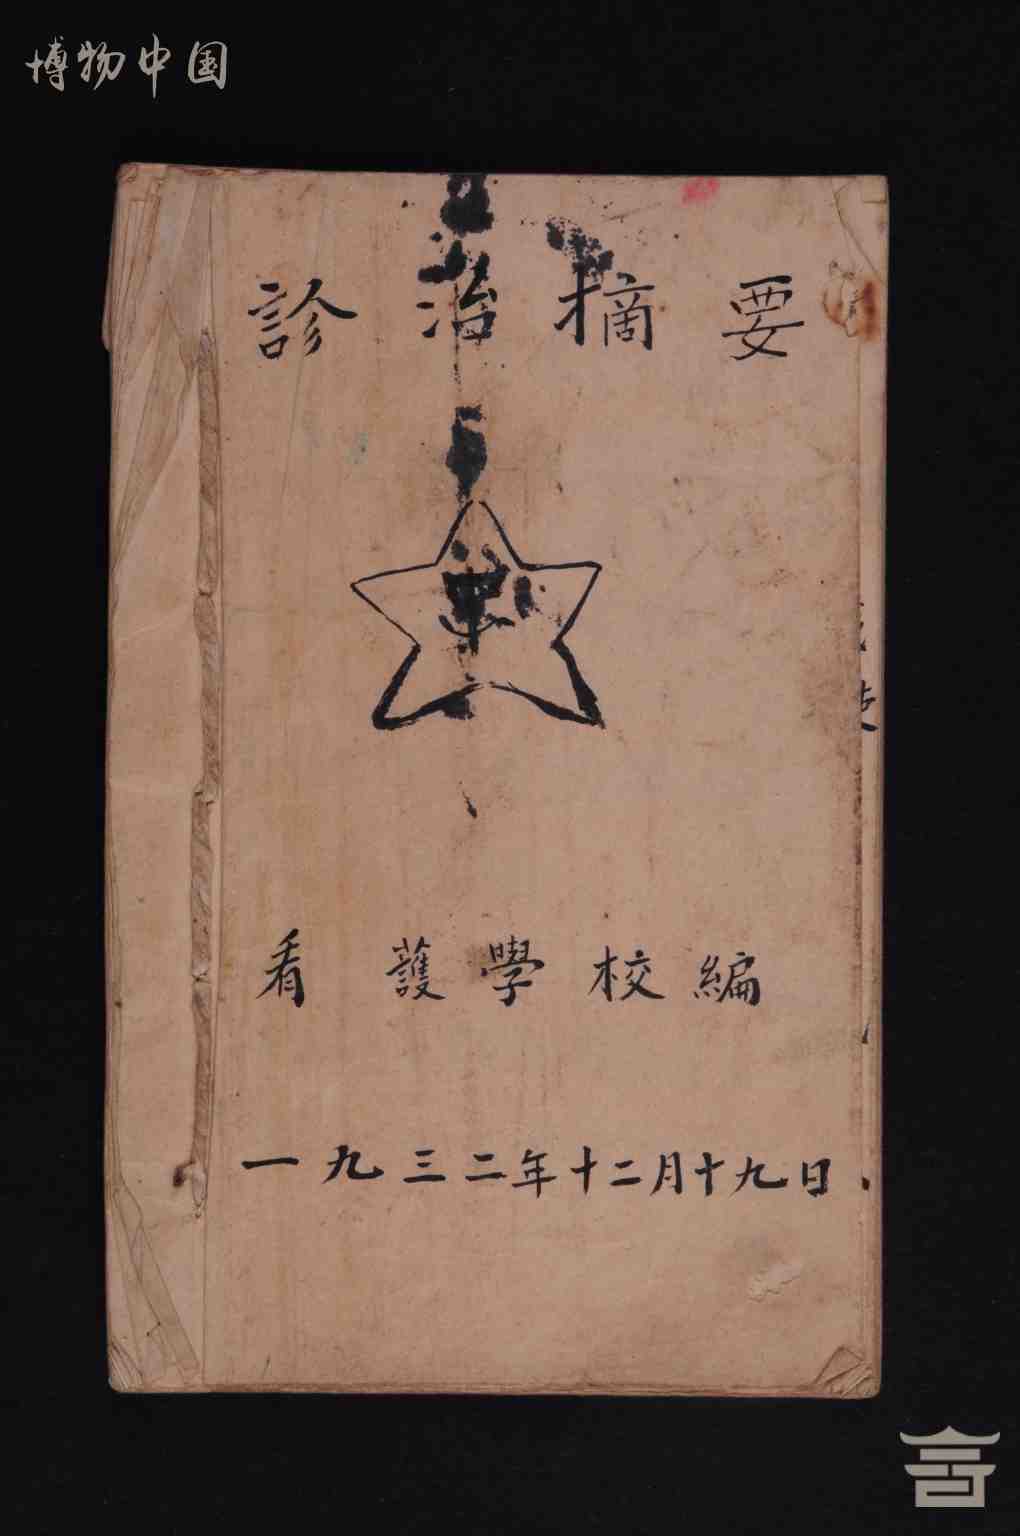 博物中国
診治摘要
看護學校編
一九三二年十二月十九日